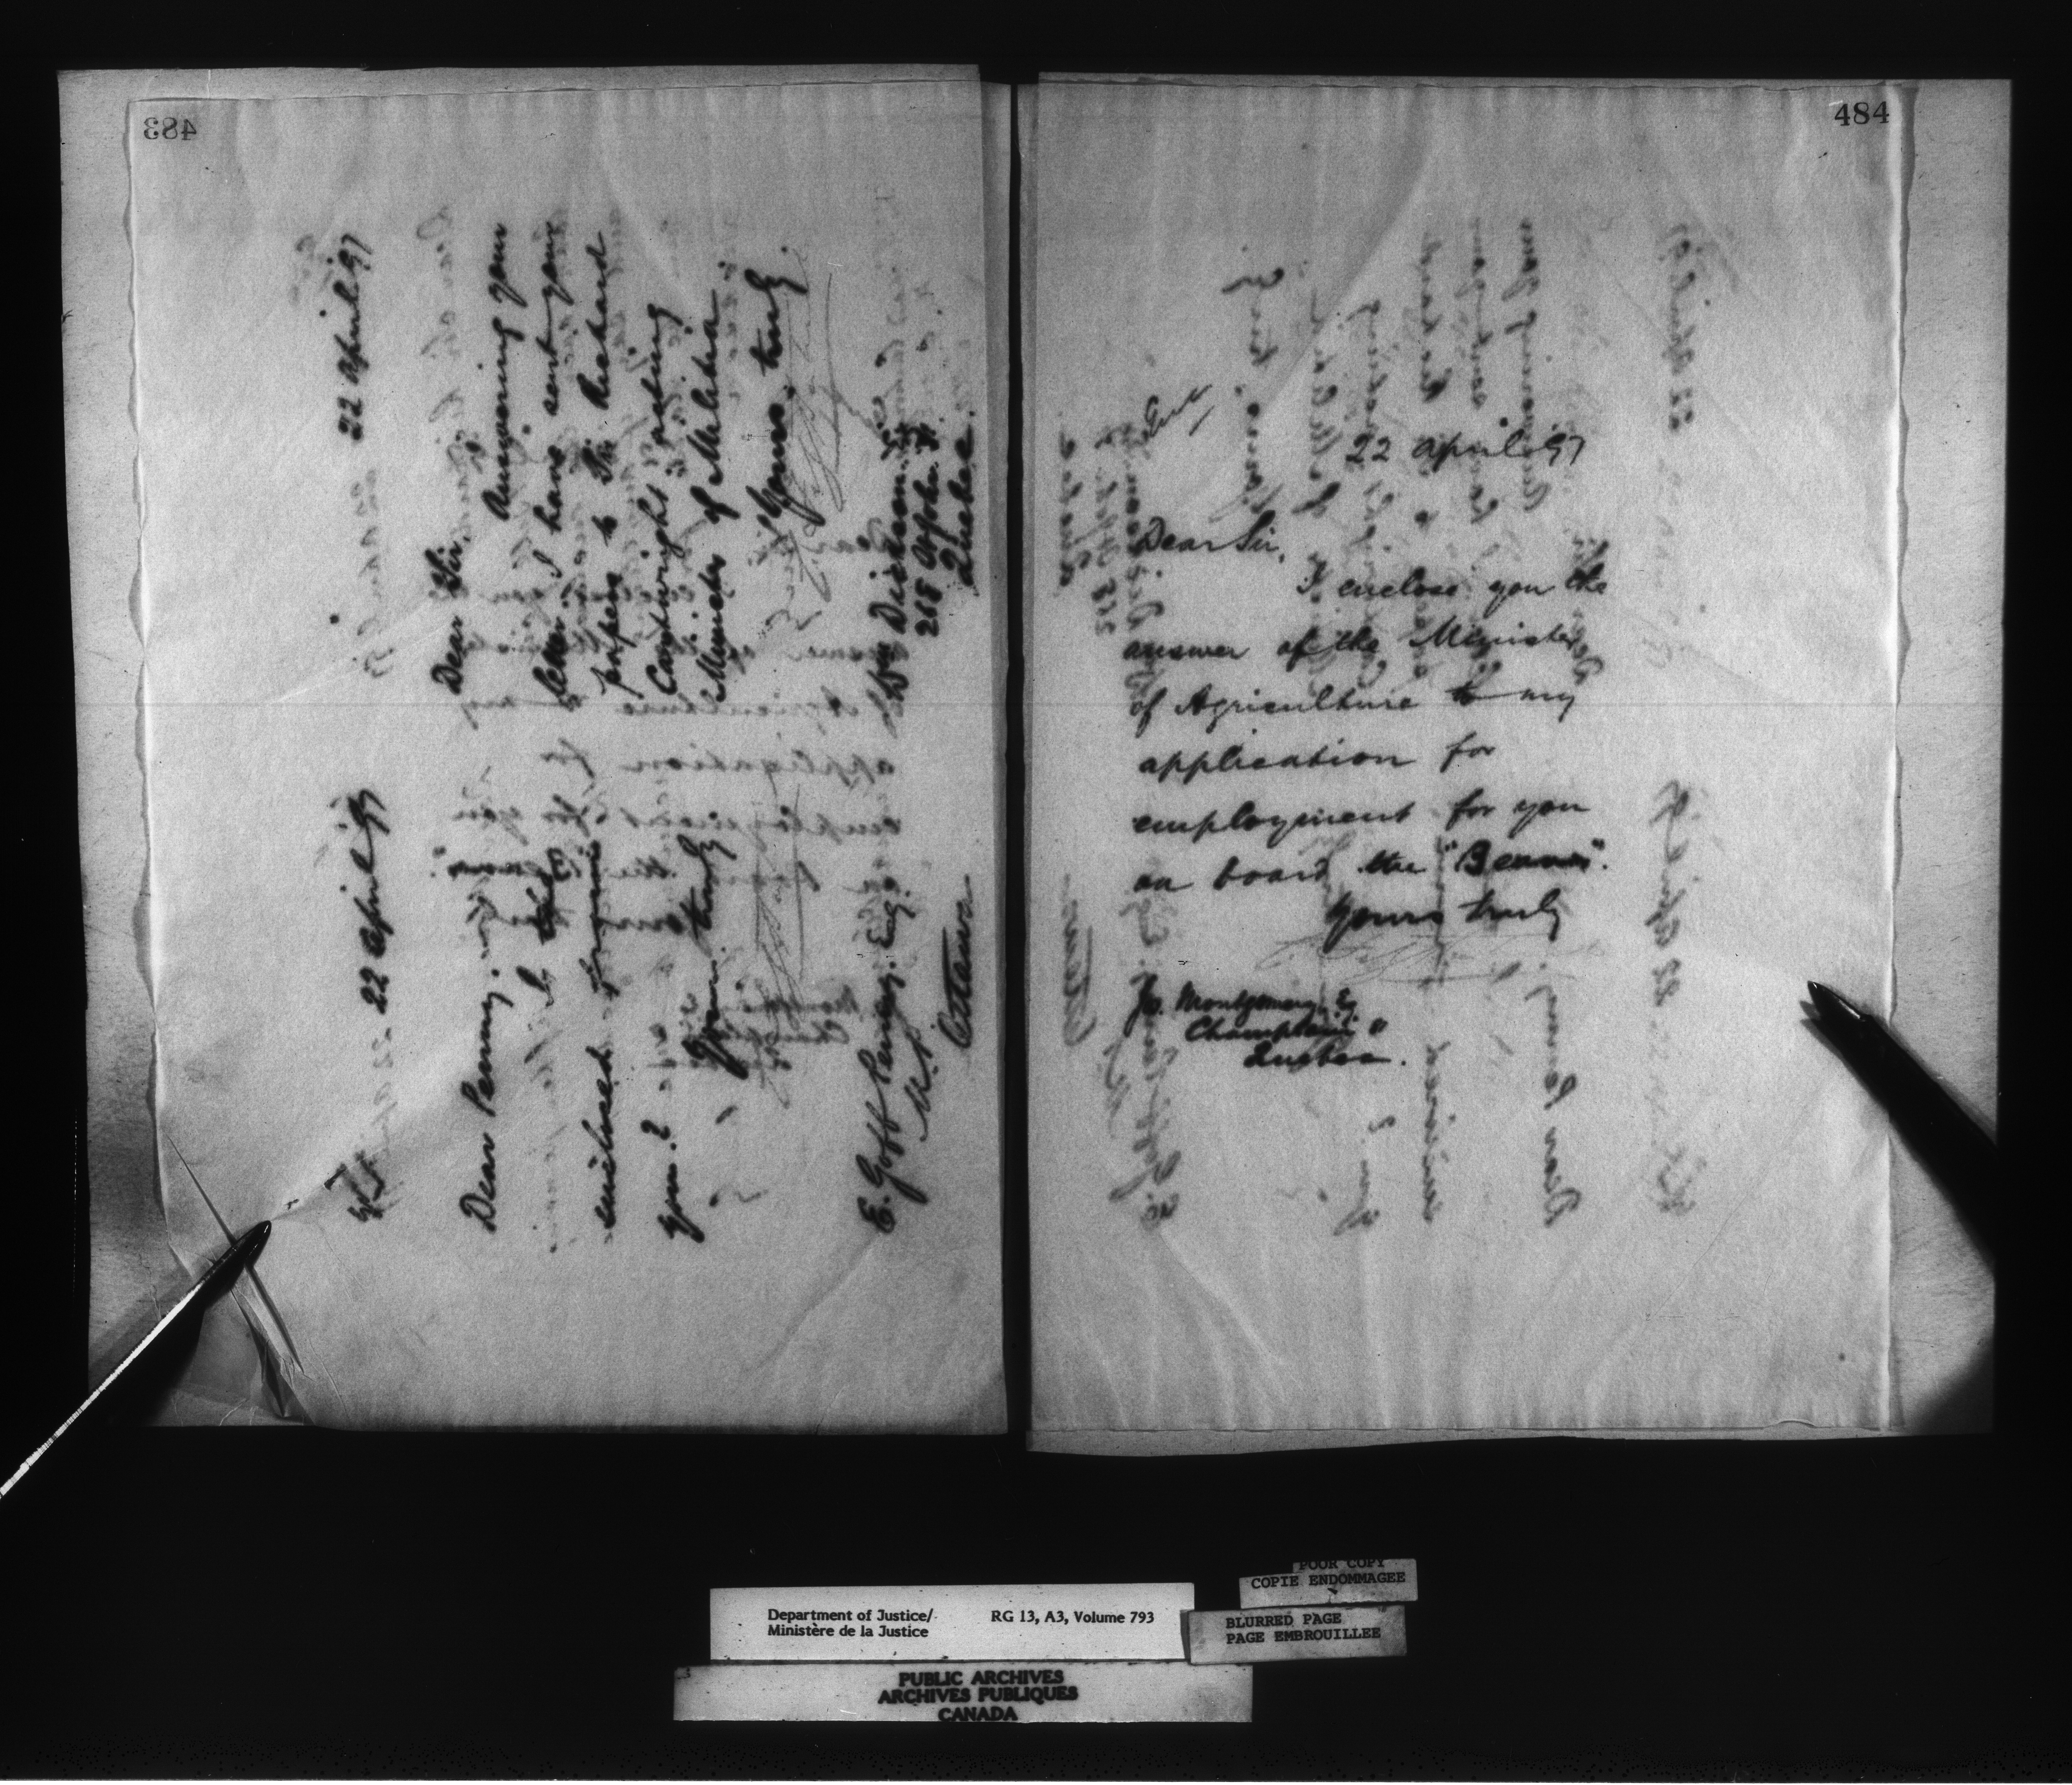 483
22 April 97
Dear Sir,
Answering your
letter I have sent your
papers to Sir Richard
Cartwright acting
Minister of Militia
Yours truly
Wm Dickson. Esq
268 St John St
Quebec.
22 April 97
Dear Penny.
enclosed
you?
Yours truly
E. Goff Penny. Esq.
M.P.
Ottawa
484
Encl
22 April 97
Dear Sir,
I enclose you the
answer of the Minister
of Agriculture to my
application for
employment for you
on board the
Yours truly
Jo. Montgomery. Esq
Champlain St
Quebec.
Department of Justice/
Ministère de la Justice
RG 13, A3, Volume 793
POOR COPY
COPIE ENDOMMAGEE
BLURRED PAGE
PAGE EMBROUILLEE
PUBLIC ARCHIVES
ARCHIVES PUBLIQUES
CANADA